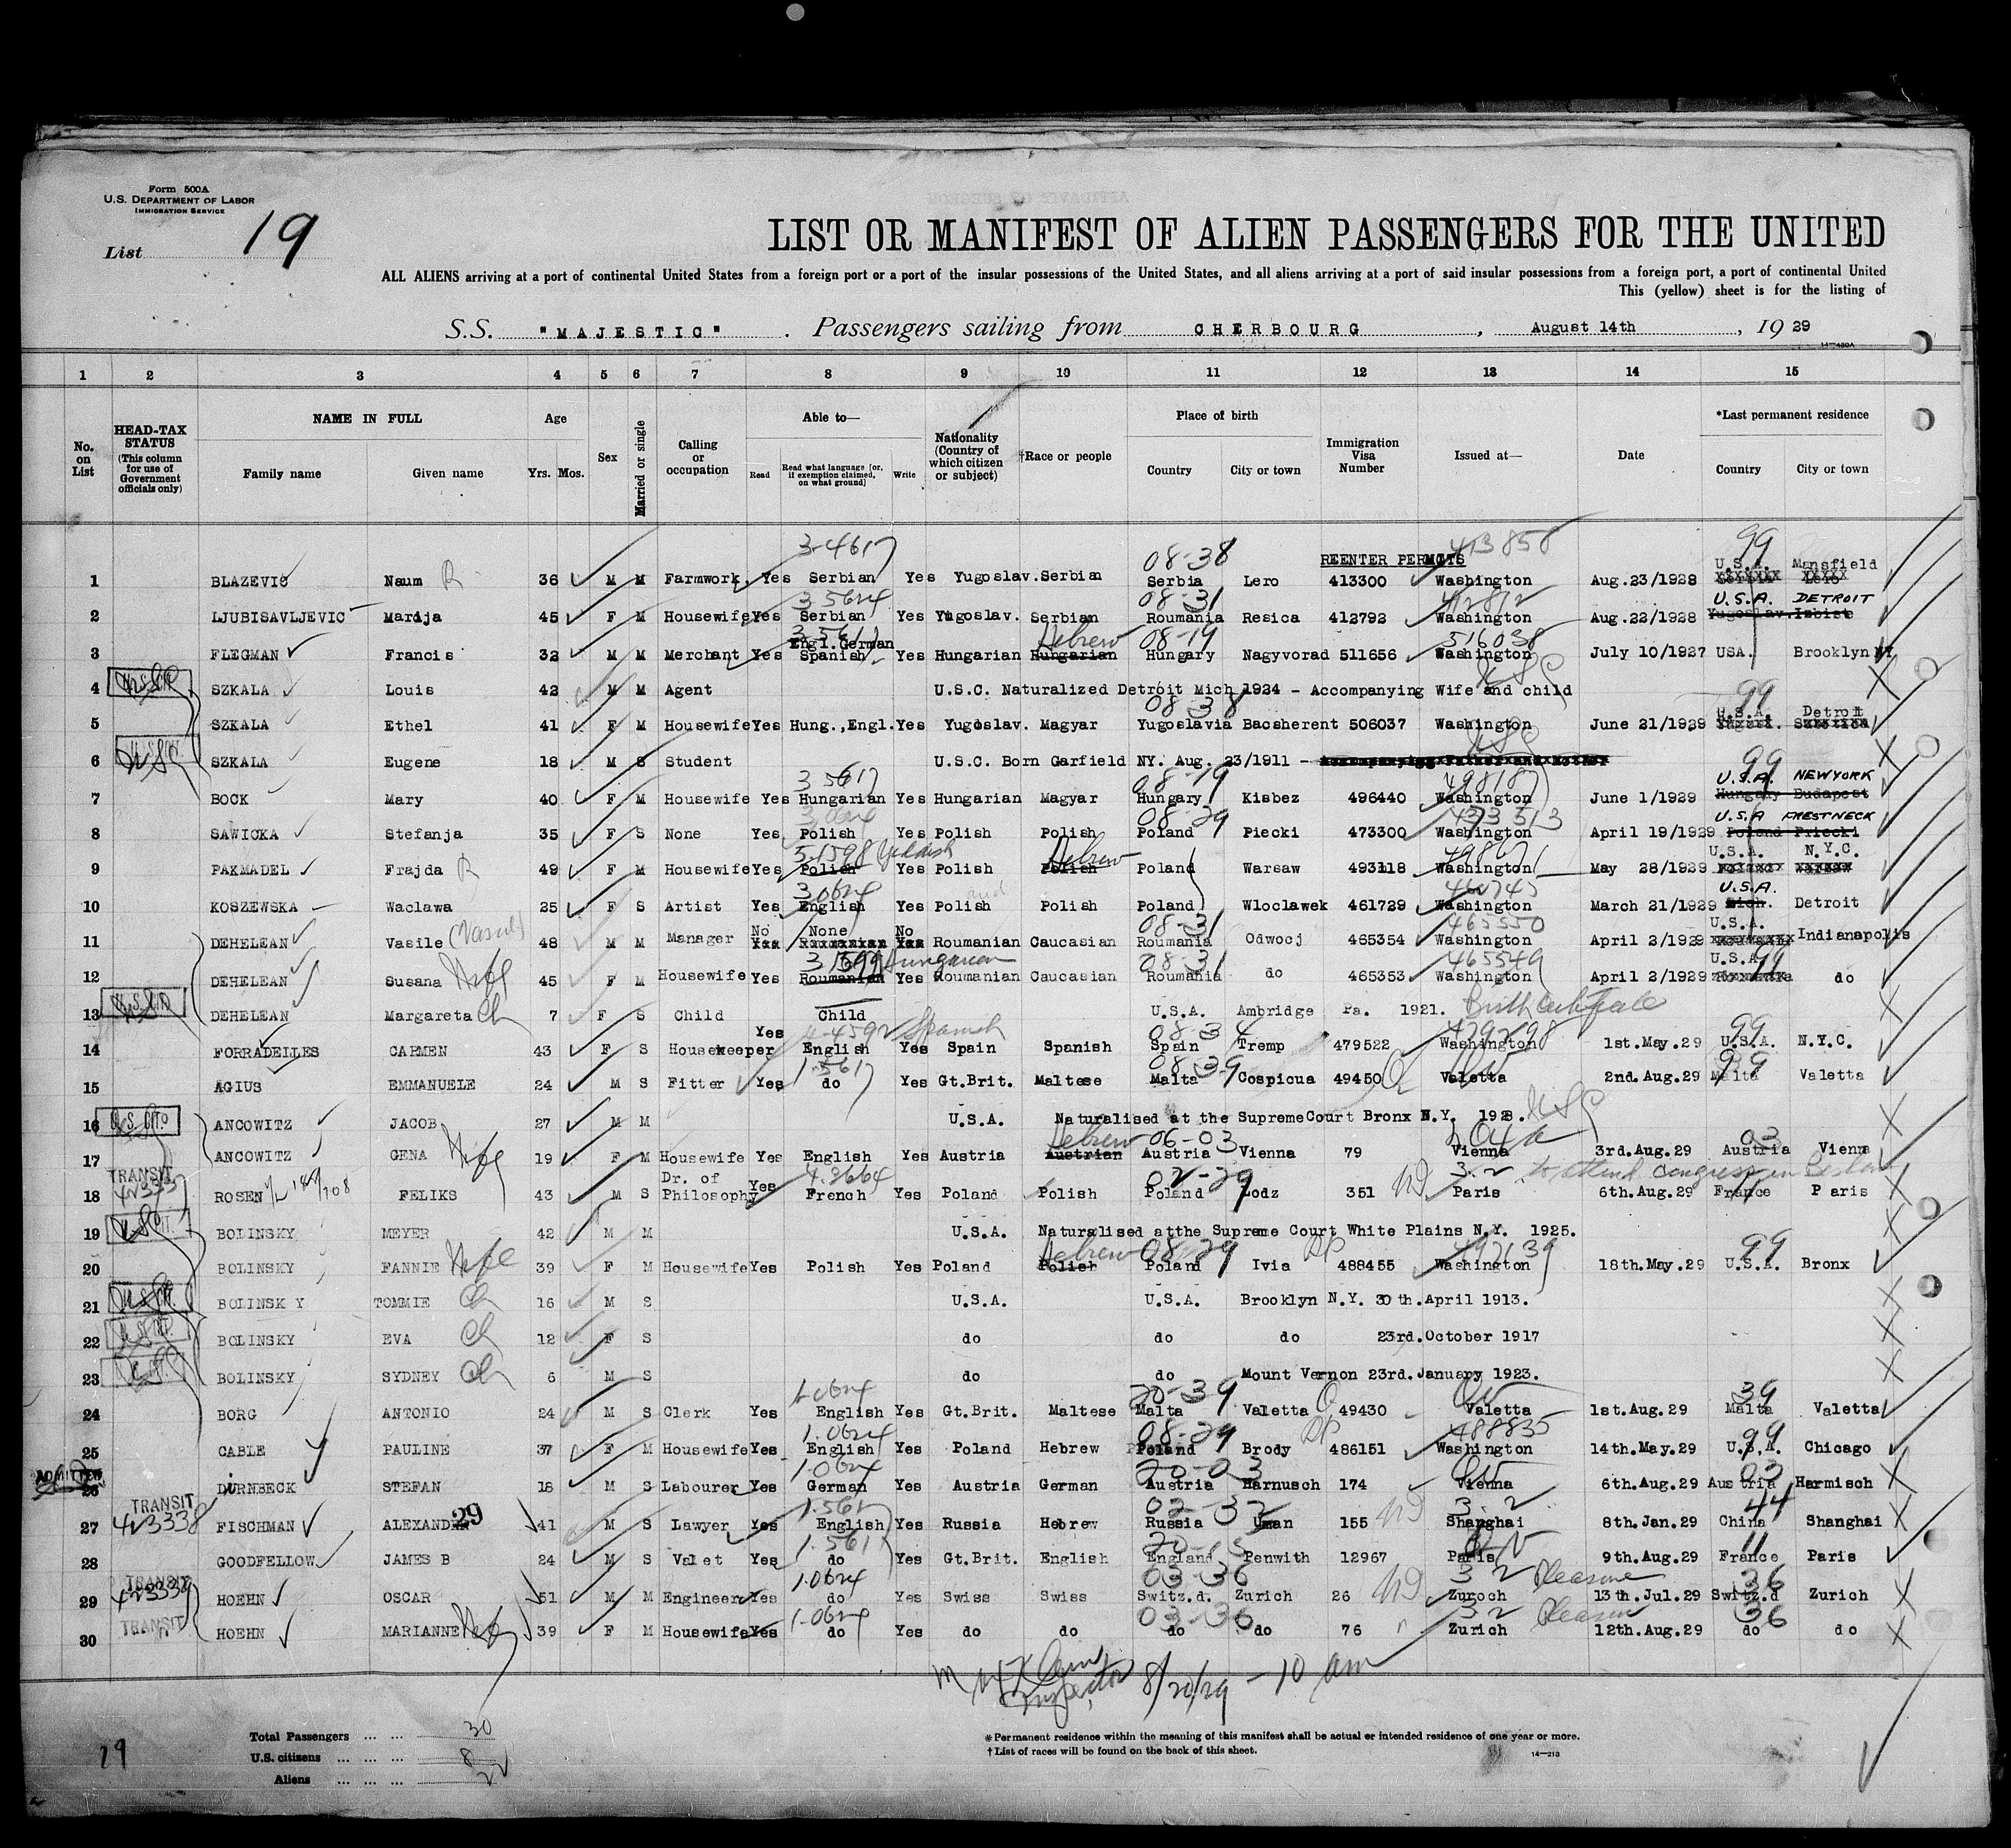 Form 500A
U.S. DEPARTMENT OF LABOR
IMMIGRATION SERVICE
List 19
LIST OR MANIFEST OF ALIEN PASSENGERS FOR THE UNITED
ALL ALIENS arriving at a port of continental United States from a foreign port or a port of the insular possessions of the United States, and all aliens arriving at a port of said insular possessions from a foreign port, a port of continental United
This (yellow) sheet is for the listing of
S.S. "MAJESTIC". Passengers sailing from CHERBOURG, August 14th, 1929
14—480A
1 2 3 4 5 6 7 8 9 10 11 12 13 14 15
No. on List
HEAD-TAX STATUS (This column for use of Government officials only)
NAME IN FULL Family name Given name
Age Yrs. Mos.
Sex
Married or single
Calling or occupation
Able to— Read Read what language [or, if exemption claimed, on what ground] Write
Nationality (Country of which citizen or subject)
†Race or people
Place of birth Country City or town
Immigration Visa Number
Issued at—
Date
*Last permanent residence Country City or town
3-4617 08-38 REENTER PERMITS 413858 99
1 BLAZEVIC Naum R 36 M M Farmwork. Yes Serbian Yes Yugoslav. Serbian Serbia Lero 413300 Washington Aug.23/1928 U.S.A. Mansfield
35624 08-31 412812
2 LJUBISAVLJEVIC Marija 45 F M Housewife Yes Serbian Yes Yugoslav. Serbian Roumania Resica 412792 Washington Aug.22/1928 U.S.A. DETROIT Yugoslav. Izbiste
3 5617 Hebrew 08-19 516038
3 FLEGMAN Francis 32 M M Merchant Yes Engl. German Spanish Yes Hungarian Hungarian Hungary Nagyvorad 511656 Washington July 10/1927 USA. Brooklyn NY
4 SZKALA Louis 42 M M Agent U.S.C. Naturalized Detroit Mich 1924 - Accompanying Wife and child USC
08-38 99
5 SZKALA Ethel 41 F M Housewife Yes Hung., Engl. Yes Yugoslav. Magyar Yugoslavia Bacsherent 506037 Washington June 21/1929 U.S.A. Detroit
6 SZKALA Eugene 18 M S Student U.S.C. Born Garfield NY. Aug. 23/1911 - USC
3 5617 08-19 498187 99
7 BOCK Mary 40 F M Housewife Yes Hungarian Yes Hungarian Magyar Hungary Kisbez 496440 Washington June 1/1929 U.S.A. NEWYORK Hungary Budapest
08-29 473313
8 SAWICKA Stefanja 35 F S None Yes Polish Yes Polish Polish Poland Piecki 473300 Washington April 19/1929 U.S.A FRESTNECK Poland Priecki
5.1598 Yiddish Hebrew
9 PAKMADEL Frajda R 49 F M Housewife Yes Polish Yes Polish Polish Poland Warsaw 493118 Washington May 28/1929 U.S.A. N.Y.C.
3.0624
10 KOSZEWSKA Waclawa 25 F S Artist Yes English Yes Polish Polish Poland Wloclawek 461729 Washington March 21/1929 U.S.A. Mich. Detroit
08-31 465550
11 DEHELEAN Vasile (Vasul) 48 M M Manager No None No Roumanian Caucasian Roumania Odwocj 465354 Washington April 2/1929 U.S.A. Indianapolis
Hungarian 08-31 465549
12 DEHELEAN Susana Wife 45 F M Housewife Yes Roumanian Yes Roumanian Caucasian Roumania do 465353 Washington April 2/1929 U.S.A. do
13 DEHELEAN Margareta Ch 7 F S Child Child U.S.A. Ambridge Pa. 1921. Birth Certificate
4-4592 Spanish 08-34 479298 99
14 FORRADELLES CARMEN 43 F S Housekeeper Yes English Yes Spain Spanish Spain Tremp 479522 Washington 1st.May.29 U.S.A. N.Y.C.
1.5617 08-39 99
15 AGIUS EMMANUELE 24 M S Fitter Yes do Yes Gt.Brit. Maltese Malta Cospicua 49450 Valetta 2nd.Aug.29 Malta Valetta
16 ANCOWITZ JACOB 27 M M U.S.A. Naturalised at the Supreme Court Bronx N.Y. 1928. USC
Hebrew 06-03 03
17 ANCOWITZ GENA Wife 19 F M Housewife Yes English Yes Austria Austrian Austria Vienna 79 Vienna 3rd.Aug.29 Austria Vienna
TRANSIT 4.3664 02-29 3.2 to attend congress in
18 ROSEN FELIKS 43 M S Dr. of Philosophy Yes French Yes Poland Polish Poland Lodz 351 Paris 6th.Aug.29 France Paris
19 BOLINSKY MEYER 42 M M U.S.A. Naturalised atthe Supreme Court White Plains N.Y. 1925.
Hebrew 08-29 492639 99
20 BOLINSKY FANNIE Wife 39 F M Housewife Yes Polish Yes Poland Polish Poland Ivia 488455 Washington 18th.May.29 U.S.A. Bronx
21 BOLINSKY TOMMIE Ch 16 M S U.S.A. U.S.A. Brooklyn N.Y. 30th.April 1913.
22 BOLINSKY EVA Ch 12 F S do do do 23rd.October 1917
23 BOLINSKY SYDNEY Ch 6 M S do do Mount Vernon 23rd.January 1923.
1.0624 20-39 39
24 BORG ANTONIO 24 M S Clerk Yes English Yes Gt.Brit. Maltese Malta Valetta 49430 Valetta 1st.Aug.29 Malta Valetta
1.0624 08-29 488835 99
25 CABLE PAULINE 37 F M Housewife Yes English Yes Poland Hebrew Poland Brody 486151 Washington 14th.May.29 U.S.A. Chicago
ADMITTED 1.0624 20-03 03
26 DIRNBECK STEFAN 18 M S Labourer Yes German Yes Austria German Austria Harnusch 174 Vienna 6th.Aug.29 Austria Harmisch
TRANSIT 423338 1.561 02-32 3.2 44
27 FISCHMAN ALEXANDER 29 41 M S Lawyer Yes English Yes Russia Hebrew Russia Uman 155 Shanghai 8th.Jan.29 China Shanghai
1.561 20-15 11
28 GOODFELLOW JAMES B 24 M S Valet Yes do Yes Gt.Brit. English England Penwith 12967 Paris 9th.Aug.29 France Paris
TRANSIT 423339 1.0624 03-36 3 2 Pleasure 36
29 HOEHN OSCAR 51 M M Engineer Yes do Yes Swiss Swiss Switz.d. Zurich 26 Zuroch 13th.Jul.29 Switz.d Zurich
TRANSIT 1.0624 03-36 3.2 Pleasure 36
30 HOEHN MARIANNE Wife 39 F M Housewife Yes do Yes do do do do 76 Zurich 12th.Aug.29 do do
Inspector 8/20/29 - 10 am
Total Passengers ... ... 30
U.S. citizens ... ... ... 8
Aliens ... ... ... 22
19
*Permanent residence within the meaning of this manifest shall be actual or intended residence of one year or more.
†List of races will be found on the back of this sheet.
14—213